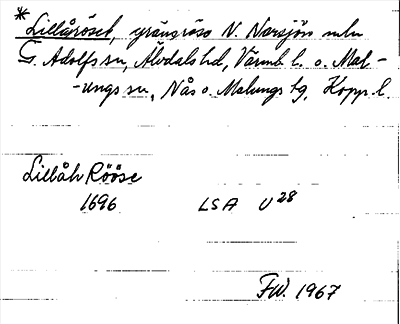 *Lillåröset, gränsröse N. Narsjön mln
G. Adolfs sn, Älvdals hd, Värml. l. o. Mal-
-ungs sn, Nås o. Malungs tg, Kopp. l.
Lillåhr Rööse
1696 LSA U 28
FW. 1967